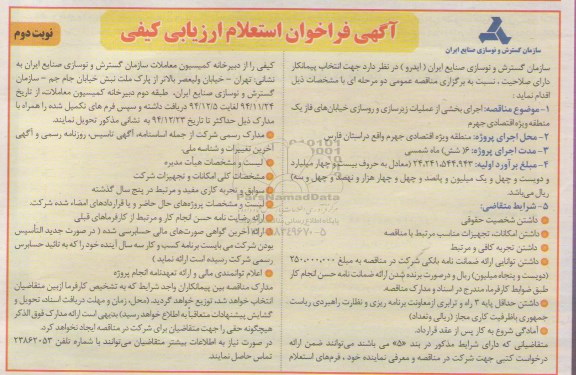 آگهی فراخوان استعلام ارزیابی کیفی
نوبت دوم
سازمان گسترش و نوسازی صنایع ایران
سازمان گسترش و نوسازی صنایع ایران ( ایدرو ) در نظر دارد جهت انتخاب پیمانکار
دارای صلاحیت ، نسبت به برگزاری مناقصه عمومی دو مرحله ای با مشخصات ذیل
اقدام نماید :
۱- موضوع مناقصه: اجرای بخشی از عملیات زیرسازی و روسازی خیابان‌های فاز یک
منطقه ویژه اقتصادی جهرم
۲- محل اجرای پروژه: منطقه ویژه اقتصادی جهرم واقع در استان فارس
۳- مدت اجرای پروژه: ۶( شش) ماه شمسی
۴- مبلغ برآورد اولیه: ۲۴،۲۴۱،۵۴۴،۹۴۳ (معادل به حروف بیست و چهار میلیارد
و دویست و چهل و یک میلیون و پانصد و چهل و چهار هزار و نهصد و چهل و سه)
ریال می‌باشد.
۵- شرایط متقاضی:
داشتن شخصیت حقوقی
داشتن امکانات، تجهیزات مناسب مرتبط با مناقصه
داشتن تجربه کافی و مرتبط
داشتن توانایی ارائه ضمانت نامه بانکی شرکت در مناقصه به مبلغ ۲۵۰،۰۰۰،۰۰۰
(دویست و پنجاه میلیون) ریال و درصورت برنده شدن ارائه ضمانت نامه حسن انجام کار
طبق ضوابط کارفرما، مندرج در اسناد و مدارک مناقصه.
داشتن حداقل پایه ۴ راه و ترابری از معاونت برنامه ریزی و نظارت راهبردی ریاست
جمهوری با ظرفیت کاری مجاز (ریالی و تعداد)
آمادگی شروع به کار پس از عقد قرارداد.
متقاضیانی که دارای شرایط مذکور در بند «۵» می باشند می‌توانند ضمن ارائه
درخواست کتبی جهت شرکت در مناقصه و معرفی نماینده خود ، فرم‌های استعلام
کیفی را از دبیرخانه کمیسیون معاملات سازمان گسترش و نوسازی صنایع ایران به
نشانی: تهران - خیابان ولیعصر بالاتر از پارک ملت نبش خیابان جام جم - سازمان
گسترش و نوسازی صنایع ایران، طبقه دوم دبیرخانه کمیسیون معاملات، از تاریخ
۹۴/۱۱/۲۴ لغایت ۹۴/۱۲/۵ دریافت داشته و سپس فرم های تکمیل شده را همراه با
مدارک ذیل حداکثر تا تاریخ ۹۴/۱۲/۲۳ به نشانی مذکور تحویل نمایند.
مدارک رسمی شرکت از جمله اساسنامه، آگهی تاسیس، روزنامه رسمی و آگهی
آخرین تغییرات و شناسه ملی.
لیست و مشخصات هیأت مدیره
مشخصات کلی امکانات و تجهیزات شرکت
سوابق و تجربه کاری مفید و مرتبط در پنج سال گذشته
لیست و مشخصات پروژه‌های حال حاضر و یا قراردادهای امضاء شده شرکت.
ارائه رضایت نامه حسن انجام کار و مرتبط از کارفرماهای قبلی
ارائه آخرین گواهی صورت‌های مالی حسابرسی شده ( در صورت جدید التأسیس
بودن شرکت می بایست برنامه کسب و کار سه سال آینده خود را که به تائید حسابرس
رسمی شرکت رسیده است ارائه نماید )
اعلام توانمندی مالی و ارائه تعهدنامه انجام پروژه
مدارک مناقصه بین پیمانکاران واجد شرایط که به تشخیص کارفرما ازبین متقاضیان
انتخاب خواهد شد، توزیع خواهد گردید. (محل، زمان و مهلت دریافت اسناد، تحویل و
گشایش پیشنهادات متعاقباً به اطلاع خواهد رسید) بدیهی است ارائه مدارک فوق الذکر
هیچگونه حقی را جهت متقاضیان برای شرکت در مناقصه ایجاد نخواهد کرد.
در صورت نیاز به اطلاعات بیشتر متقاضیان می‌توانند با شماره تلفن ۲۳۸۶۲۰۵۳
تماس حاصل نمایند.
ParsNamadData